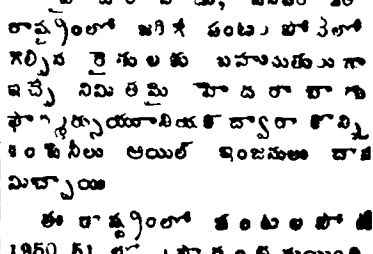 రాష్ట్రంలో జరిగే పంటల పోటీలో
గెల్చిన రైతులకు బహుమతులుగా
ఇచ్చే నిమిత్తమై హైదరాబాదు
ఫార్మర్సుయూనియన్ ద్వారా కొన్ని
కంపెనీలు ఆయిల్ ఇంజనులు
మిచ్చాయి
ఈ రాష్ట్రంలో పంటలపోటీ
1950 51 లో